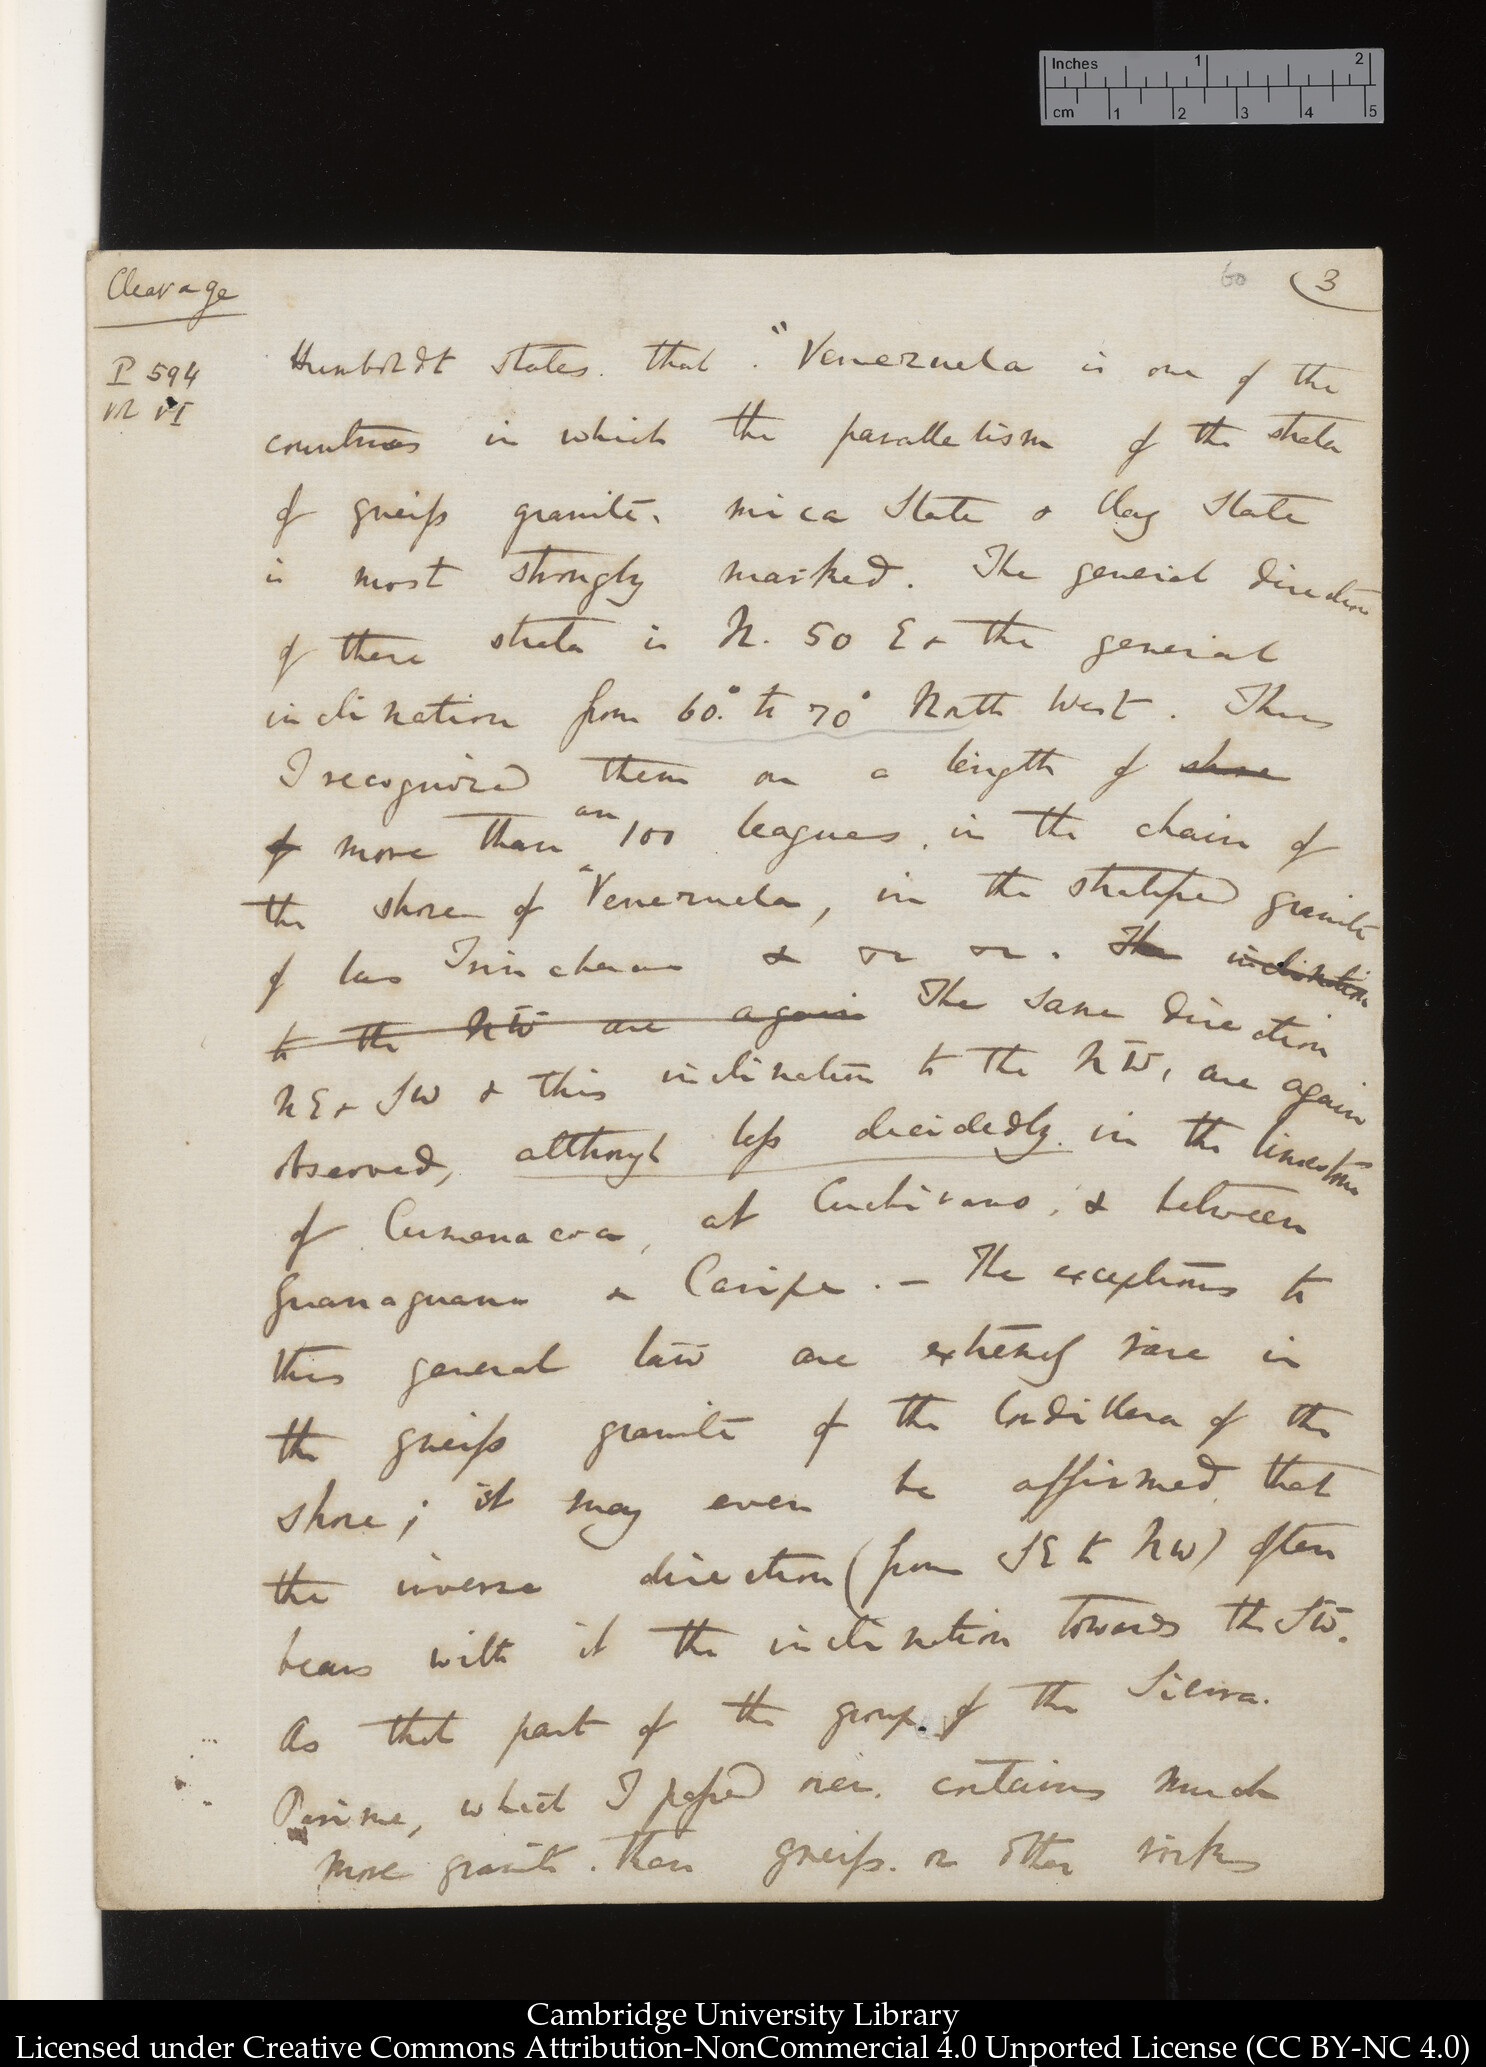 Inches 1 2
cm 1 2 3 4 5
Cleavage
60 (3
P 594
Vol VI
Humboldt states that "Venezuela is one of the
countries in which the parallelism of the strata
of gneiss granite, mica slate & clay slate
is most strongly marked. The general direction
of these strata is N. 50 E & the general
inclination from 60° to 70° North West. Thus
I recognized them on a length of shore
of more than an 100 leagues, in the chain of
the shore of "Venezuela, in the stratified granite
of las Trincheras & &c &c. The inclination
to the NW are again The same direction
NE & SW & this inclination to the NW, are again
observed, although less decidedly in the limestone
of Cumanacoa, at Cuchivano, & between
Guanaguana & Caripe. — The exceptions to
this general law are extremely rare in
the gneiss granite of the Cordillera of the
shore; it may even be affirmed that
the inverse direction (from SE to NW) often
bears with it the inclination towards the SW.
As that part of the group of the Sierra
Parime, which I passed over, contains much
more granite than gneiss or other rocks
Cambridge University Library
Licensed under Creative Commons Attribution-NonCommercial 4.0 Unported License (CC BY-NC 4.0)